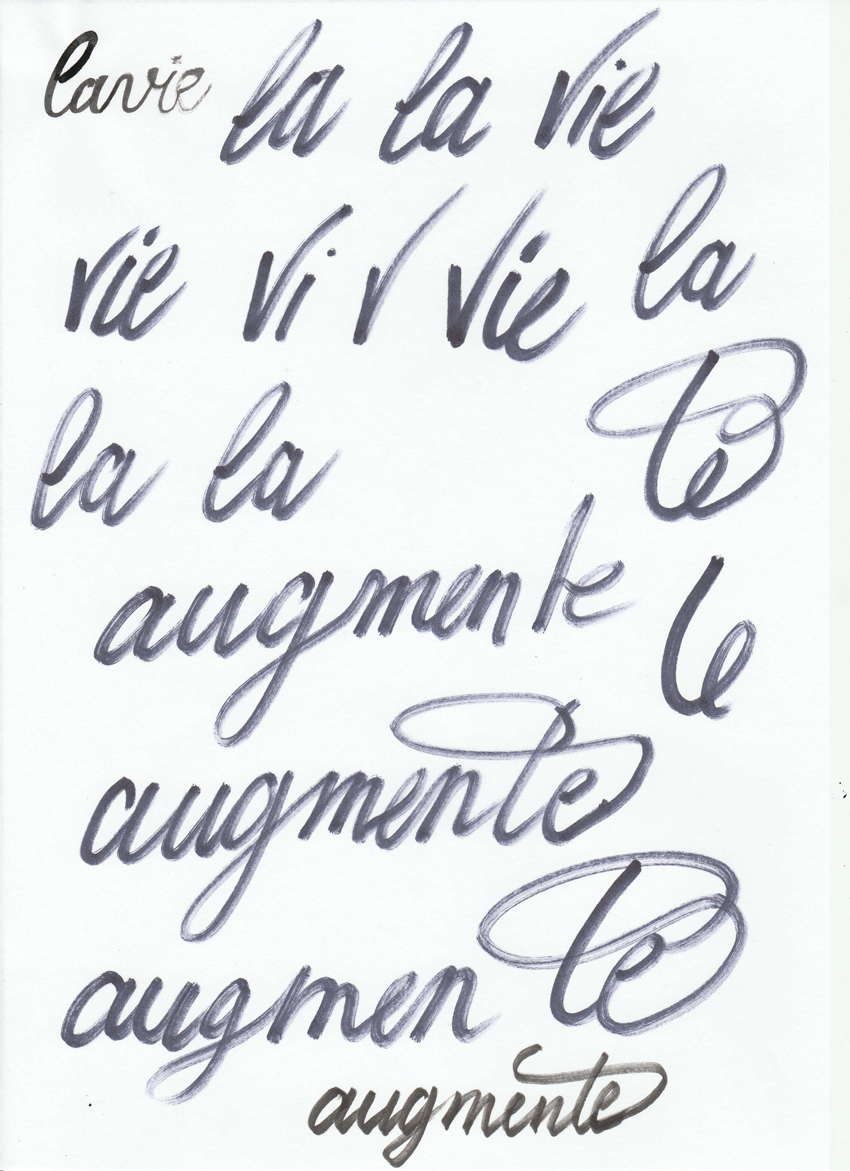 la vie la la vie
vie vi v vie la
la la te
augmente te
augmente
augmente
augmente